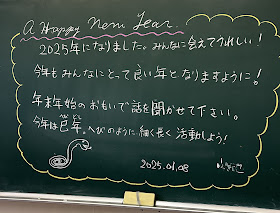 A Happy New Year.
2025年になりました。みんなに会えてうれしい!
今年もみんなにとって良い年となりますように!
年末年始のおもいで話を聞かせて下さい。
今年は巳年。へびのように細く長く活動しよう!
2025.01.08